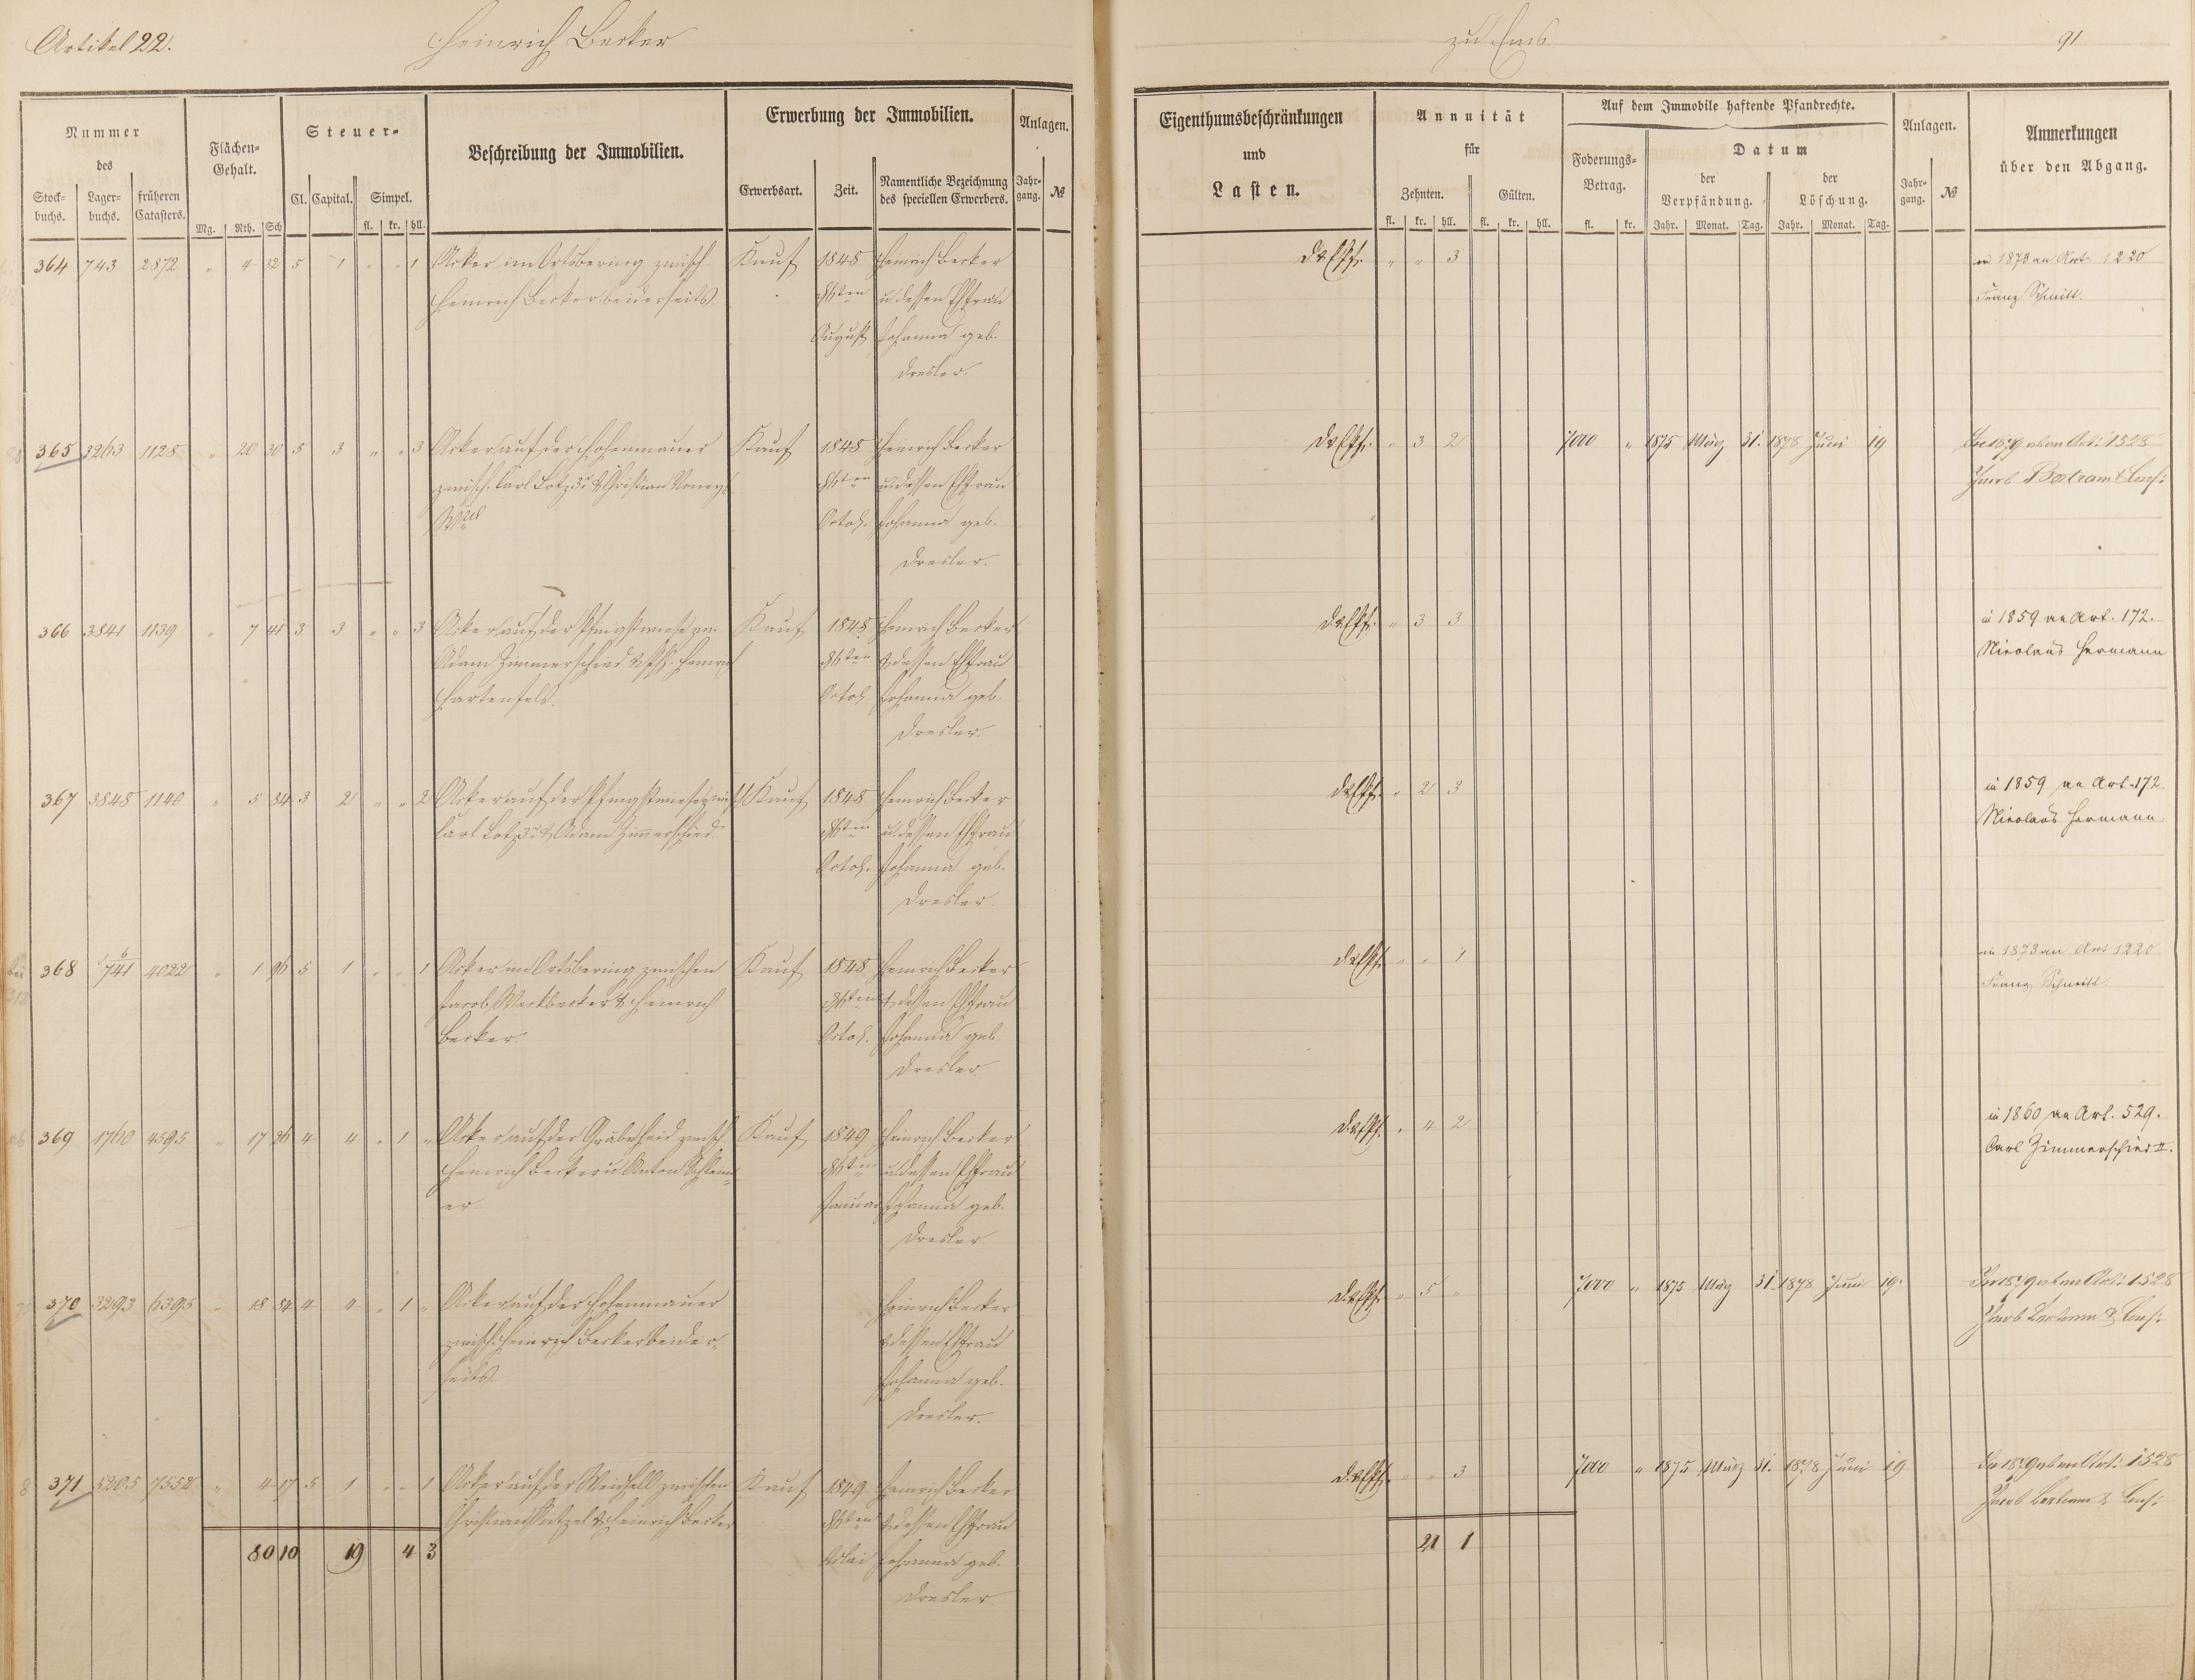 Artikel 22. Heinrich Becker zu Ems 91
Nummer des
Stockbuchs. Lagerbuchs. früheren Catasters.
Flächen-Gehalt.
Mg. Rth. Sch
Steuer-
Cl. Capital. Simpel.
fl. kr. hll.
Beschreibung der Immobilien.
Erwerbung der Immobilien.
Erwerbsart. Zeit. Namentliche Bezeichnung des speciellen Erwerbers.
Anlagen.
Jahrgang. №
Eigenthumsbeschränkungen
und
Lasten.
Annuität
für
Zehnten. Gülten.
fl. kr. hll. fl. kr. hll.
Auf dem Immobile haftende Pfandrechte.
Foderungs-Betrag.
fl. kr.
Datum
der Verpfändung. der Löschung.
Jahr. Monat. Tag. Jahr. Monat. Tag.
Anlagen.
Jahrgang. №
Anmerkungen
über den Abgang.
364 743 2872 " 4 32 5 1 " " 1 Acker im Ortsbering zwisch Kauf 1848 Heinrich Becker " " 3 in 1873 an Art. 1220
Heinrich Becker beiderseits ten u dessen Ehfrau Franz Schmitt.
August Johanna geb.
Dresler.
365 3263 1128 " 20 30 5 3 " " 3 Acker auf der Hohenmauer Kauf 1848 Heinrich Becker " 3 2 7000 " 1875 März 31. 1878 Juni 19 Art: 1528
zwisch. Carl Lotz 3r & Christian ten u dessen Ehfrau Jacob Bertram & Cons:
Octob. Johanna geb.
Dresler.
366 3841 1139 " 7 41 3 3 " " 3 Acker auf der Pfingstwiese zw. Kauf 1848 Heinrich Becker " 3 3 in 1859 an Art. 172.
Adam Zimmerschied & Heinrich ten & dessen Ehfrau Nicolaus Hermann
Hartenfels. Octob Johanna geb.
Dresler.
367 3848 1140 " 5 84 3 2 " " 2 Acker auf der Pfingstwiese zwisch Kauf 1848 Heinrich Becker " 2 3 in 1859 an Art. 172
Carl Lotz 3r & Adam Zimmerschied ten u dessen Ehfrau Nicolaus Hermann
Octob. Johanna geb.
Dresler
368 6/741 4022 " 1 96 5 1 " " 1 Acker im Ortsbering zwischen Kauf 1848 Heinrich Becker " " 1 in 1873 an Art 1220
Jacob Weckbecker & Heinrich ten & dessen Ehfrau Franz Schmitt.
Becker. Octob. Johanna geb.
Dresler
369 1760 4595 " 17 26 4 4 " 1 " Acker auf der zwisch Kauf 1849 Heinrich Becker " 4 2 in 1860 an Art. 529.
Heinrich Becker u. Anton ten u dessen Ehfrau Carl Zimmerschied II.
er Januar Johanna geb.
Dresler
370 3293 6395 " 18 84 4 4 " 1 " Acker auf der Hohenmauer Heinrich Becker " 5 " 7000 " 1875 März 31. 1878 Juni 19. Art: 1528
zwisch. Heinrich Becker beider- & dessen Ehfrau Jacob Bertram & Cons:
seits. Johanna geb.
Dresler.
371 5205 7552 " 4 17 5 1 " " 1 Acker auf der zwischen Kauf 1849 Heinrich Becker " " 3 7000 " 1875 März 31. 1878 Juni 19 Art: 1528
Christian & Heinrich Becker ten & dessen Ehfrau Jacob Bertram & Cons:
80 10 19 4 3 Johanna geb. 21 1
Dresler.